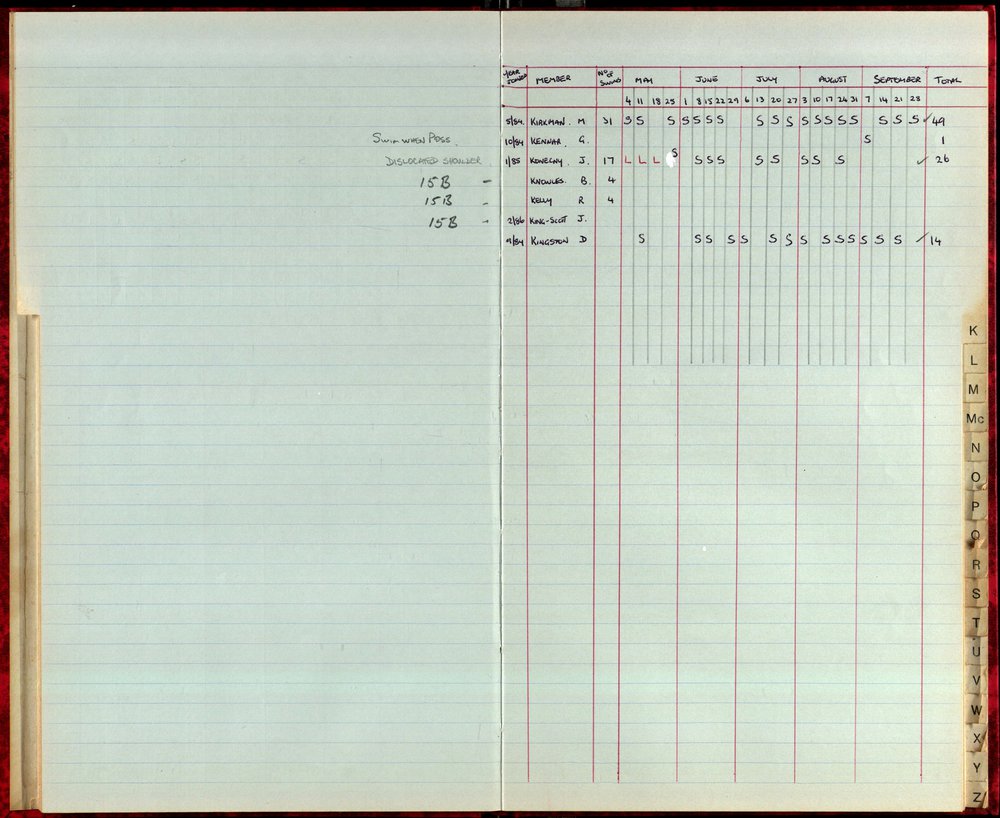 YEAR JOINED MEMBER NO OF SWIMS MAY JUNE JULY AUGUST SEPTEMBER TOTAL
4 11 18 25 1 8 15 22 29 6 13 20 27 3 10 17 24 31 7 14 21 28
5/84. KIRKMAN. M 31 S S S S S S S S S S S S S S S S S S ✓ 49
SWIM WHEN POSS. 10/84 KENNAR G. S 1
DISLOCATED SHOULDER 1/85 KONECNY J. 17 L L L S S S S S S S S S ✓ 26
15B - KNOWLES. B. 4
15B - KELLY R 4
15B - 2/86 KING-SCOT J.
KINGSTON D S S S S S S S S S S S S S S ✓ 14
K
L
M
Mc
N
O
P
Q
R
S
T
U
V
W
X
Y
Z